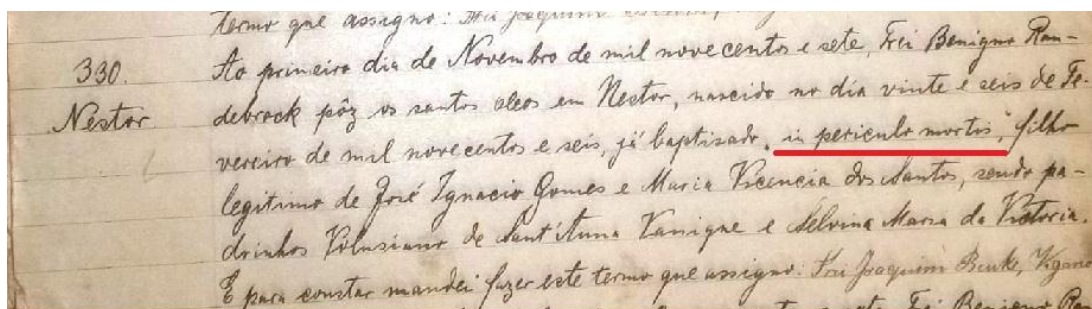 termo que assigno: Frei Joaquim
330. Ao primeiro dia de Novembro de mil novecentos e sete, Frei Benigno Ran-
Nestor debrock pôz os santos oleos em Nestor, nascido no dia vinte e seis de Fe-
vereiro de mil novecentos e seis, já baptisado „in periculo mortis“, filho
legitimo de José Ignacio Gomes e Maria Vicencia dos Santos, sendo pa-
drinhos Volusiano de Sant'Anna e Maria da Victoria
E para constar mandei fazer este termo que assigno: Frei Joaquim Vigario
Frei Benigno Ran-